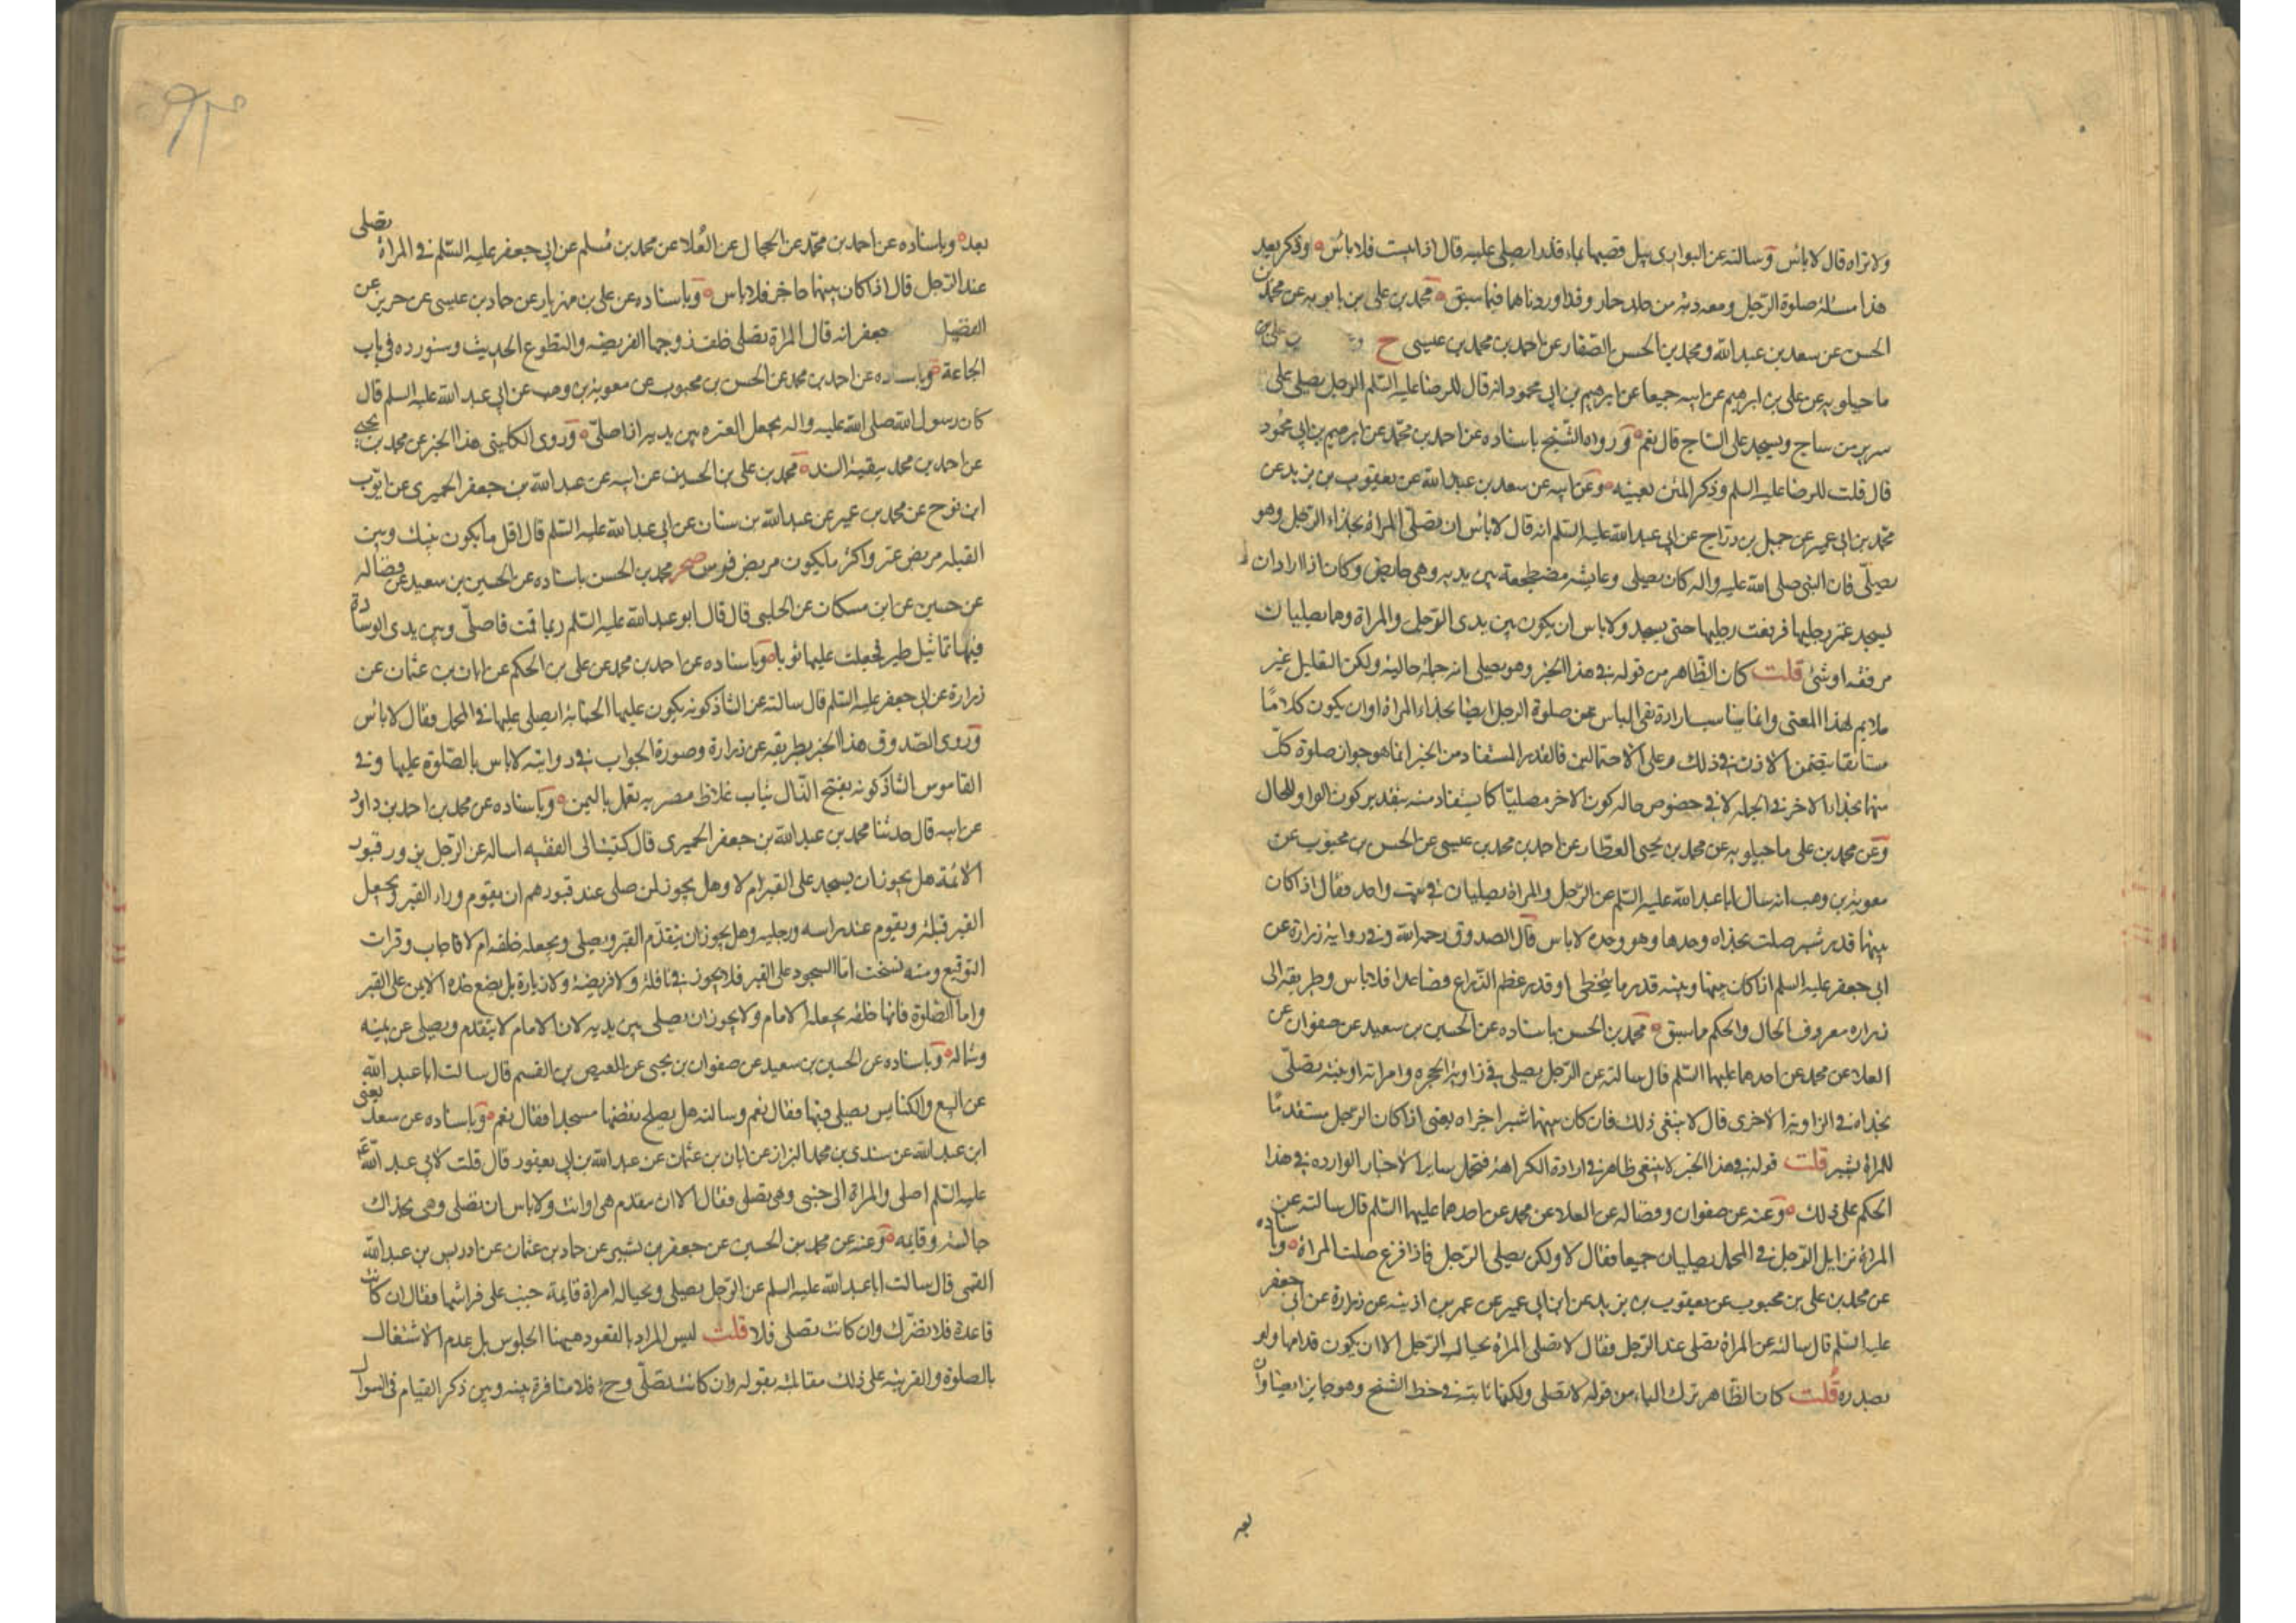 ولا تراه قال لا باس وسالته عن البواری یبل قصبها بماء قذر ایصلی علیه قال اذا یبست فلا باس وذکر بعد
هذا مسئلة صلوة الرجل ومعه دبة من جلد حمار وقد اوردناهما فیما سبق محمد بن علی بن بابویه عن محمد بن
الحسن عن سعد بن عبدالله ومحمد بن الحسن الصفار عن احمد بن محمد بن عیسی ح
ماجیلویه عن علی بن ابرهیم عن ابیه جمیعا عن ابرهیم بن ابی محمود انه قال للرضا علیه السلم الرجل یصلی علی
سریر من ساج ویسجد علی الساج قال نعم ورواه الشیخ باسناده عن احمد بن محمد عن ابرهیم بن ابی محمود
قال قلت للرضا علیه السلم وذکر المتن بعینه وعن ابیه عن سعد بن عبدالله عن یعقوب بن یزید عن
محمد بن ابی عمیر عن جمیل بن دراج عن ابی عبدالله علیه السلم انه قال لا باس ان تصلی المراة بحذاء الرجل وهو
یصلی فان النبی صلی الله علیه واله کان یصلی وعایشه مضطجعة بین یدیه وهی حایض وکان اذا اراد ان
یسجد غمز رجلیها فرفعت رجلیها حتی یسجد ولا باس ان یکون بین یدی الرجل والمراة وهما یصلیان
مرفقه او شئ قلت کان الظاهر من قوله فی هذا الخبر وهو یصلی انه جملة حالیة ولکن التعلیل غیر
ملایم لهذا المعنی وانما یناسب ارادة نفی الباس عن صلوة الرجل ایضا بحذاء المراة او ان یکون کلاما
مستانفا یتضمن الاذن فی ذلک وعلی الاحتمالین فالقدر المستفاد من الخبر انما هو جواز صلوة کل
منهما بحذاء الاخر فی الجمله لا فی خصوص حاله کون الاخر مصلیا کما یستفاد منه بتقدیر کون الواو للحال
وعن محمد بن علی ماجیلویه عن محمد بن یحیی العطار عن احمد بن محمد بن عیسی عن الحسن بن محبوب عن
معویة بن وهب انه سال ابا عبدالله علیه السلم عن الرجل والمراة یصلیان فی بیت واحد فقال اذا کان
بینهما قدر شبر صلت بحذاه وحدها وهو وحده لا باس قال الصدوق رحمه الله وفی روایة زرارة عن
ابی جعفر علیه السلم اذا کان بینها وبینه قدر ما یتخطی او قدر عظم الذراع فصاعدا فلا باس وطریقه الی
زراره معروف الحال والحکم مما سبق محمد بن الحسن باسناده عن الحسین بن سعید عن صفوان عن
العلا عن محمد عن احدهما علیهما السلم قال سالته عن الرجل یصلی فی زاویة الحجره وامراته او ابنته تصلی
بحذاه فی الزاویة الاخری قال لا ینبغی ذلک فان کان بینهما شبر اجزاه یعنی اذا کان الرجل متقدما
للمراة بشبر قلت قوله فی هذا الخبر لا ینبغی ظاهر فی ارادة الکراهة فتحمل سایر الاخبار الوارده فی هذا
الحکم علی ذلک وعنه عن صفوان وفضاله عن العلا عن محمد عن احدهما علیهما السلم قال سالته عن
المراة تزامل الرجل فی المحمل یصلیان جمیعا فقال لا ولکن یصلی الرجل فاذا فرغ صلت المراة وباسناده
عن محمد بن علی بن محبوب عن یعقوب بن یزید عن ابن ابی عمیر عن عمر بن اذینه عن زرارة عن ابی جعفر
علیه السلم قال سالته عن المراة تصلی عند الرجل فقال لا تصلی المراة بحیال الرجل الا ان یکون قدامها ولو
بصدره قلت کان الظاهر ترک الیاء من قوله لا تصلی ولکنها ثابتة فی خط الشیخ وهو جایز ایضا وان
بعد
بعد وباسناده عن احمد بن محمد عن الحجال عن العلا عن محمد بن مسلم عن ابی جعفر علیه السلم فی المراة تصلی
عند الرجل قال اذا کان بینهما حاجز فلا باس وباسناده عن علی بن مهزیار عن حماد بن عیسی عن حریز عن
الفضیل جعفر انه قال المراة تصلی خلف زوجها الفریضه والتطوع الحدیث وسنورده فی باب
الجماعة وباسناده عن احمد بن محمد عن الحسن بن محبوب عن معویة بن وهب عن ابی عبدالله علیه السلم قال
کان رسول الله صلی الله علیه واله یجعل العنزه بین یدیه اذا صلی وروی الکلینی هذا الخبر عن محمد بن یحیی
عن احمد بن محمد ببقیة السند محمد بن علی بن الحسین عن ابیه عن عبدالله بن جعفر الحمیری عن ایوب
ابن نوح عن محمد بن عمیر عن عبدالله بن سنان عن ابی عبدالله علیه السلم قال اقل ما یکون بینک وبین
القبله مربض عنز واکثر ما یکون مربض فرس صحر محمد بن الحسن باسناده عن الحسین بن سعید عن فضاله
عن حسین عن ابن مسکان عن الحلبی قال قال ابو عبدالله علیه السلم ربما قمت فاصلی وبین یدی الوسادة
فیها تماثیل طیر فجعلت علیها ثوبا وباسناده عن احمد بن محمد عن علی بن الحکم عن ابان بن عثمان عن
زرارة عن ابی جعفر علیه السلم قال سالته عن الشاذکونه یکون علیها الجنابة ایصلی علیها فی المحمل فقال لا باس
وروی الصدوق هذا الخبر بطریقه عن زرارة وصورة الجواب فی روایته لا باس بالصلوة علیها وفی
القاموس الشاذکونه بفتح الذال ثیاب غلاظ مضربه تعمل بالیمن وباسناده عن محمد بن احمد بن داود
عن ابیه قال حدثنا محمد بن عبدالله بن جعفر الحمیری قال کتبت الی الفقیه اساله عن الرجل یزور قبور
الائمة هل یجوز ان یسجد علی القبر ام لا وهل یجوز لمن صلی عند قبورهم ان یقوم وراء القبر ویجعل
القبر قبلة ویقوم عند راسه ورجلیه وهل یجوز ان یتقدم القبر ویصلی ویجعله خلفه ام لا فاجاب وقرات
التوقیع ومنه نسخت اما السجود علی القبر فلا یجوز فی نافلة ولا فریضة ولا زیارة بل یضع خده الایمن علی القبر
واما الصلوة فانها خلفه یجعله الامام ولا یجوز ان یصلی بین یدیه لان الامام لا یتقدم ویصلی عن یمینه
وشماله وباسناده عن الحسین بن سعید عن صفوان بن یحیی عن العیص بن القسم قال سالت ابا عبدالله
عن البیع والکنایس یصلی فیها فقال نعم وسالته هل یصلح نقضها مسجدا فقال نعم وباسناده عن سعد یعنی
ابن عبدالله عن سندی بن محمد البزاز عن ابان بن عثمان عن عبدالله بن ابی یعفور قال قلت لابی عبدالله
علیه السلم اصلی والمراة الی جنبی وهی تصلی فقال لا الا ان تتقدم هی او انت ولا باس ان تصلی وهی بحذاک
جالسة وقایمه وعنه عن محمد بن الحسین عن جعفر بن بشیر عن حماد بن عثمان عن ادریس بن عبدالله
القمی قال سالت ابا عبدالله علیه السلم عن الرجل یصلی وبحیاله امراة قایمة جنب علی فراشها فقال ان کانت
قاعدة فلا تضرک وان کانت تصلی فلا قلت لیس المراد بالقعود هیهنا الجلوس بل عدم الاشتغال
بالصلوة والقرینه علی ذلک مقابلته بقوله وان کانت تصلی وح فلا منافرة بینه وبین ذکر القیام فی السوال